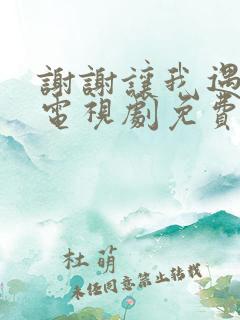 謝謝讓我遇
電視劇免費
杜萌
未经同意禁止转载